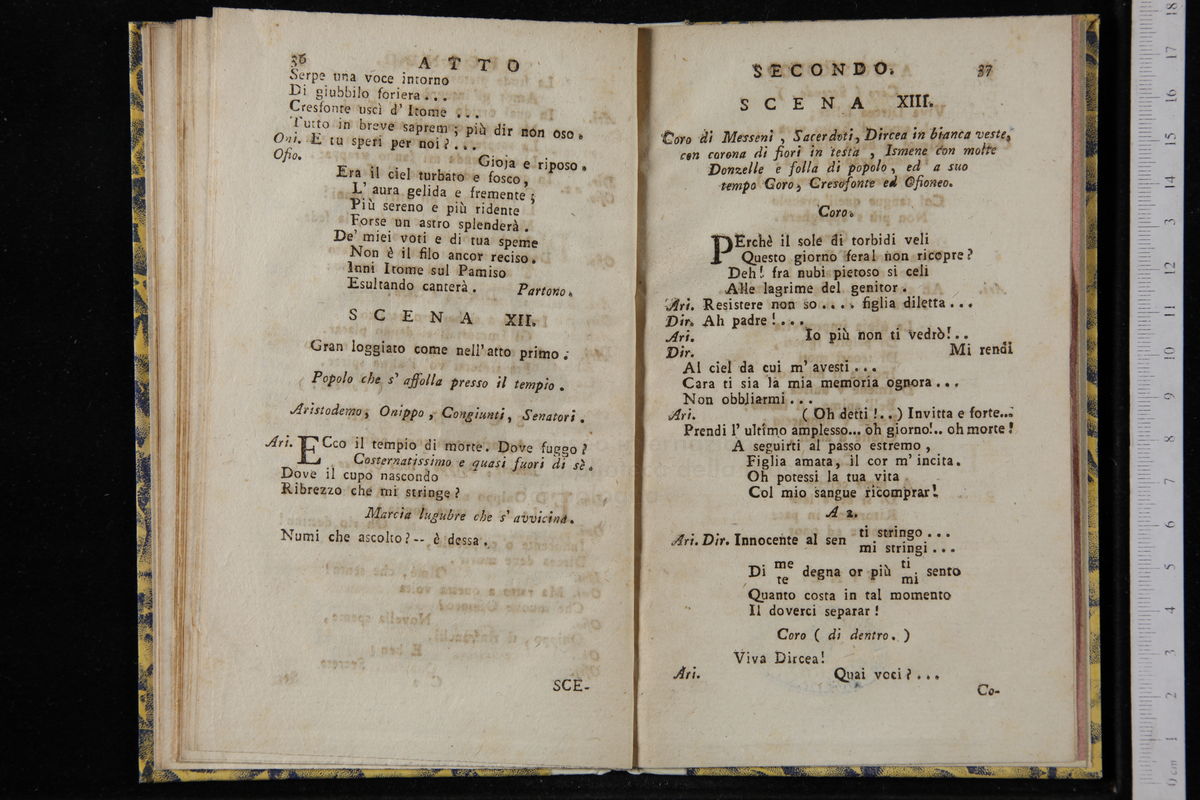 36 ATTO
Serpe una voce intorno
Di giubbilo foriera...
Cresfonte uscì d' Itome ...
Tutto in breve saprem; più dir non oso.
Oni. E tu speri per noi?...
Ofio. Gioja e riposo.
Era il ciel turbato e fosco,
L' aura gelida e fremente;
Più sereno e più ridente
Forse un astro splenderà.
De' miei voti e di tua speme
Non è il filo ancor reciso.
Inni Itome sul Pamiso
Esultando canterà. Partono.
SCENA XII.
Gran loggiato come nell' atto primo.
Popolo che s' affolla presso il tempio.
Aristodemo, Onippo, Congiunti, Senatori.
Ari. ECco il tempio di morte. Dove fuggo?
Costernatissimo e quasi fuori di sè.
Dove il cupo nascondo
Ribrezzo che mi stringe?
Marcia lugubre che s' avvicina.
Numi che ascolto? -- è dessa.
SCE-
SECONDO. 37
SCENA XIII.
Coro di Messeni, Sacerdoti, Dircea in bianca veste,
con corona di fiori in testa, Ismene con molte
Donzelle e folla di popolo, ed a suo
tempo Coro, Cresofonte ed Ofioneo.
Coro.
PErchè il sole di torbidi veli
Questo giorno feral non ricopre?
Deh! fra nubi pietoso si celi
Alle lagrime del genitor.
Ari. Resistere non so.... figlia diletta...
Dir. Ah padre!...
Ari. Io più non ti vedrò!..
Dir. Mi rendi
Al ciel da cui m' avesti...
Cara ti sia la mia memoria ognora...
Non obbliarmi...
Ari. (Oh detti!..) Invitta e forte...
Prendi l' ultimo amplesso... oh giorno!.. oh morte!
A seguirti al passo estremo,
Figlia amata, il cor m' incita.
Oh potessi la tua vita
Col mio sangue ricomprar!
A 2.
Ari. Dir. Innocente al sen ti stringo...
mi stringi...
Di me degna or più ti sento
te mi
Quanto costa in tal momento
Il doverci separar!
Coro (di dentro.)
Viva Dircea!
Ari. Quai voci?...
Co-
18
17
16
15
14
13
12
11
10
9
8
7
6
5
4
3
2
1
0 cm